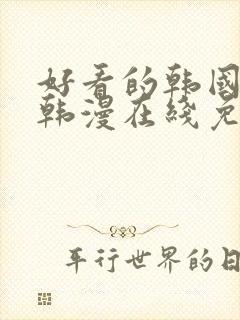 好看的韩国
韩漫在线免
平行世界的日